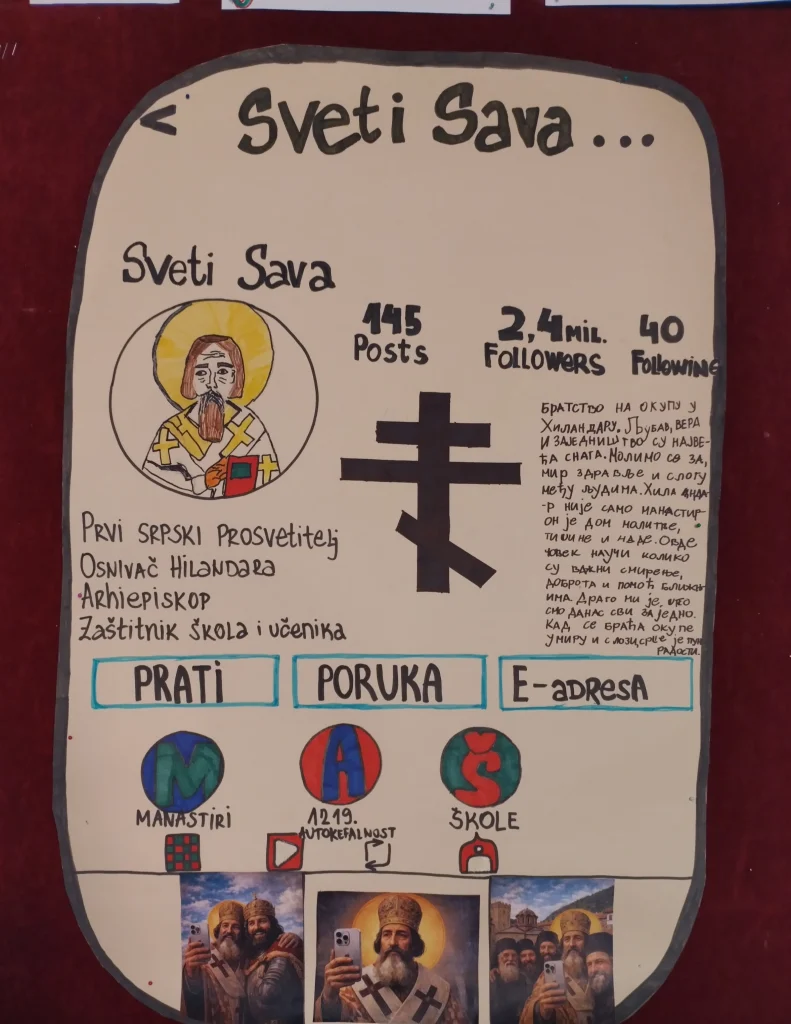 < Sveti Sava...
Sveti Sava
145
Posts
2,4 MIL.
FOLLOWERS
40
FOLLOWING
БРАТСТВО НА ОКУПУ У
ХИЛАНДАРУ. ЉУБАВ, ВЕРА
И ЗАЈЕДНИШТВО СУ НАЈВЕ-
ЋА СНАГА. МОЛИМО СЕ ЗА,
МИР ЗДРАВЉЕ И СЛОГУ
МЕЂУ ЉУДИМА. ХИЛАНДА-
-Р НИЈЕ САМО МАНАСТИР-
ОН ЈЕ ДОМ МОЛИТВЕ,
ТИШИНЕ И НАДЕ. ОВДЕ
ЧОВЕК НАУЧИ КОЛИКО
СУ ВАЖНИ СМИРЕЊЕ,
ДОБРОТА И ПОМОЋ БЛИЖЊ-
ИМА. ДРАГО МИ ЈЕ, ШТО
СМО ДАНАС СВИ ЗАЈЕДНО.
КАД СЕ БРАЋА ОКУПЕ
У МИРУ И СЛОЗИ, СРЦЕ ЈЕ ПУН
РАДОСТИ.
PRVI SRPSKI PROSVETITELJ
OSNIVAČ HILANDARA
ARHIEPISKOP
ZAŠTITNIK ŠKOLA i UČENIKA
PRATI
PORUKA
E-ADRESA
M
A
Š
MANASTIRI
1219.
AUTOKEFALNOST
ŠKOLE